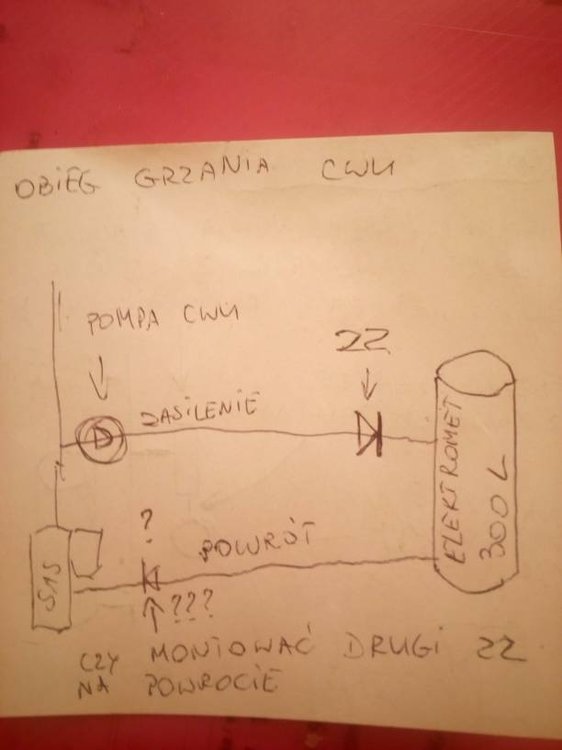 OBIEG GRZANIA CWU
POMPA CWU
ZZ
ZASILENIE
ELEKTROMET
300 L
?
POWRÓT
S15
???
CZY MONTOWAĆ DRUGI ZZ
NA POWROCIE